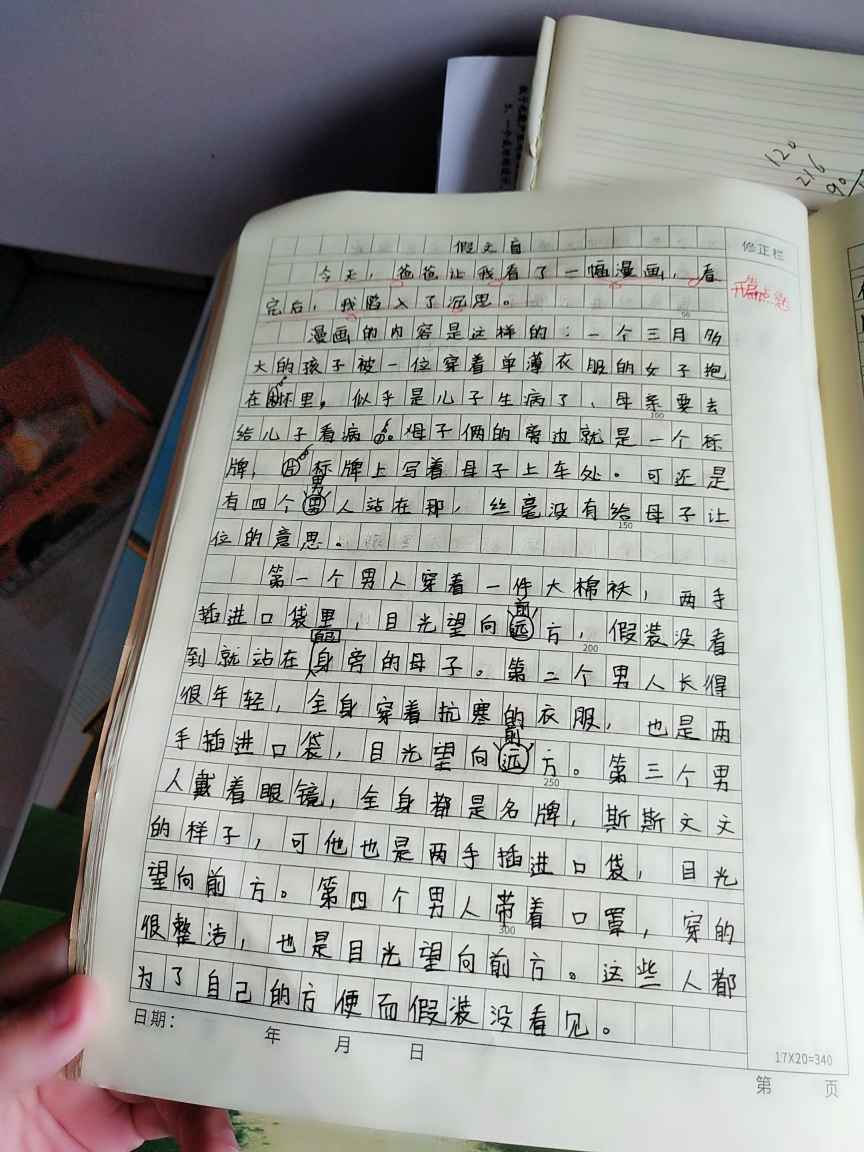 120
216
90
假文盲
修正栏
今天，爸爸让我看了一幅漫画，看
完后，我陷入了沉思。
开篇点题
50
漫画的内容是这样的：一个三月多
大的孩子被一位穿着单薄衣服的女子抱
在怀里，似乎是儿子生病了，母亲要去
100
给儿子看病。母子俩的旁边就是一个标
牌，标牌上写着母子上车处。可还是
男
有四个男人站在那，丝毫没有给母子让
150
位的意思。
第一个男人穿着一件大棉袄，两手
前
插进口袋里，目光望向远方，假装没看
200
自己
到就站在身旁的母子。第二个男人长得
很年轻，全身穿着抗寒的衣服，也是两
前
手插进口袋，目光望向远方。第三个男
250
人戴着眼镜，全身都是名牌，斯斯文文
的样子，可他也是两手插进口袋，目光
望向前方。第四个男人带着口罩，穿的
300
很整洁，也是目光望向前方。这些人都
为了自己的方便而假装没看见。
17X20=340
日期： 年 月 日
第 页